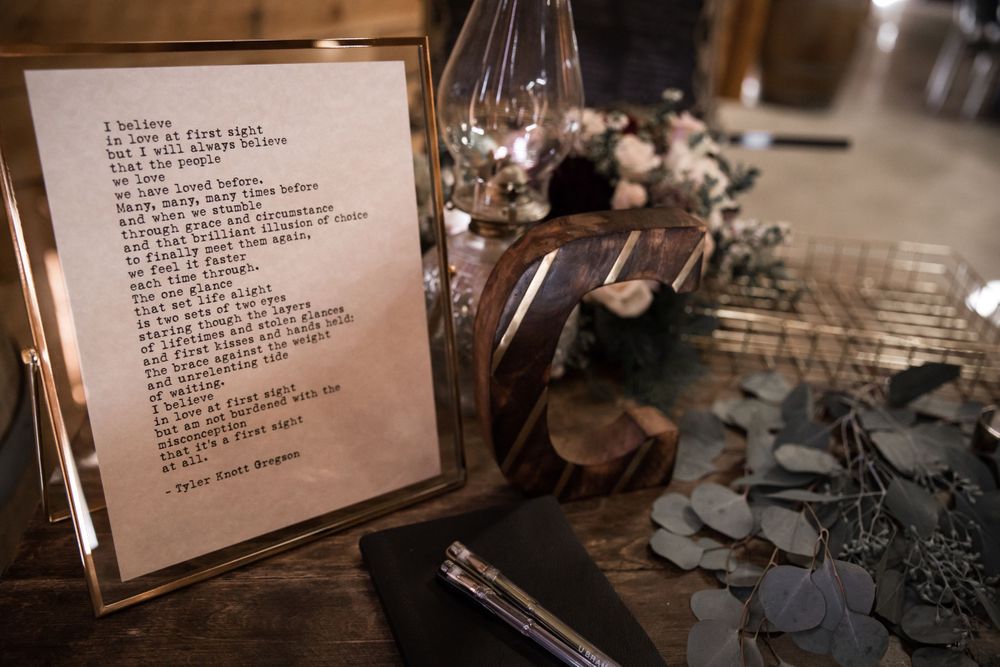 I believe
in love at first sight
but I will always believe
that the people
we love
we have loved before.
Many, many, many times before
and when we stumble
through grace and circumstance
and that brilliant illusion of choice
to finally meet them again,
we feel it faster
each time through.
The one glance
that set life alight
is two sets of two eyes
staring though the layers
of lifetimes and stolen glances
and first kisses and hands held:
The brace against the weight
and unrelenting tide
of waiting.
I believe
in love at first sight
but am not burdened with the
misconception
that it's a first sight
at all.
- Tyler Knott Gregson
C